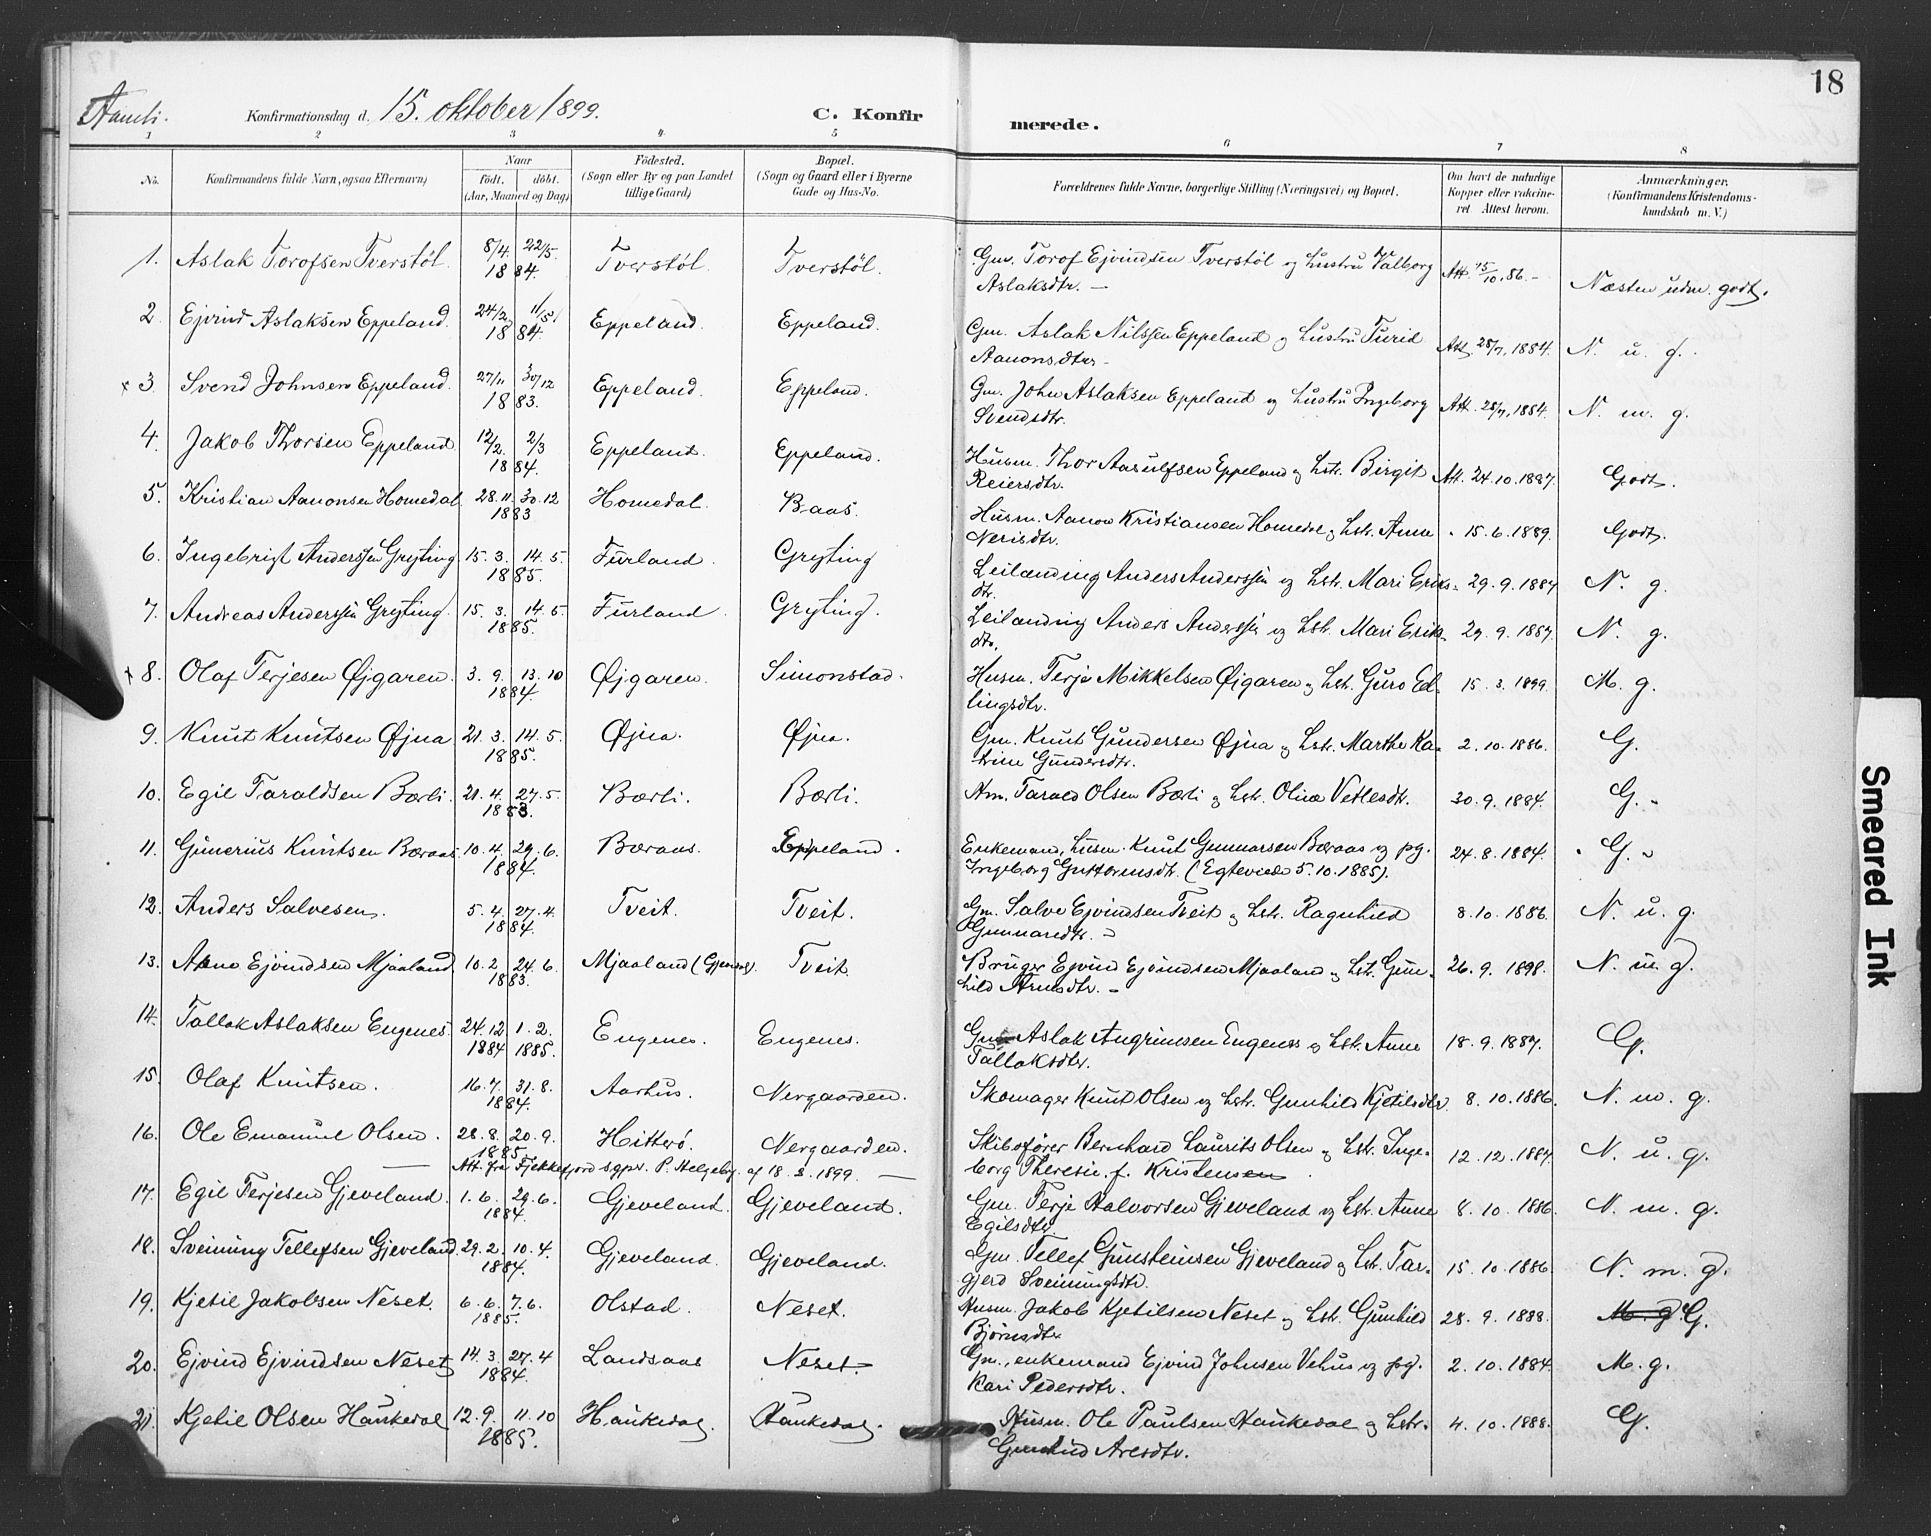 18
Aamli. Konfirmationsdag d. 15. oktober 1899. C. Konfirmerede.
1 2 3 4 5 6 7 8
No. Konfirmandens fulde Navn, ogsaa Efternavn) Naar født. døbt. (Aar, Maaned og Dag) Fødested. (Sogn eller By og paa Landet tillige Gaard) Bopæl. (Sogn og Gaard eller i Byerne Gade og Hus-No. Forældrenes fulde Navne, borgerlige Stilling (Næringsvei) og Bopæl. Om havt de naturlige Kopper eller vakcineret. Attest herom. Anmærkninger. (Konfirmandens Kristendomskundskab m. V.)
1. Aslak Torofsen Tverstøl. 8/4. 22/5. 1884. Tverstøl. Tverstøl. Gm. Torof Ejvindsen Tverstøl og hustru Valborg Aslaksdtr. — Att. 15/10, 86. — Næsten udm. godt.
2. Ejvind Aslaksen Eppeland. 24/2 11/5 1884. Eppeland. Eppeland. Gm. Aslak Nilssen Eppeland og hustru Turid Aanonsdtr. Att. 28/7, 1884. N. u. g.
x 3. Svend Johnsen Eppeland. 27/11 30/12 1883. Eppeland. Eppeland. Gm. John Aslaksen Eppeland og hustru Ingeborg Svendsdtr. Att. 28/7, 1884. N. m. g.
4. Jakob Thorsen Eppeland 12/2. 2/3 1884. Eppeland. Eppeland. Husm. Thor Aasulfsen Eppeland og hstr. Birgit Reiersdtr. Att. 24.10.1887. Godt.
5. Kristian Aanonsen Homedal. 28.11. 30.12 1883 Homedal. Baas. Husm. Aanon Kristiansen Homedal og hstr. Anne Nerisdtr. 15.6.1889. Godt.
6. Ingebrigt Anderssen Gryting. 15.3. 14.5. 1885. Furland. Gryting Leilænding Anders Anderssen og hstr. Mari Eriksdtr. 29.9.1887 N. g.
7. Andreas Anderssen Gryting. 15.3. 14.5. 1885. Furland. Gryting. Leilænding Anders Anderssen og hstr. Mari Eriksdtr. 29.9.1887. N. g.
x 8. Olaf Terjesen Øjgaren. 3.9. 13.10 1884. Øjgaren. Simonstad. Husm. Terje Mikkelsen Øjgaren og hstr. Guro Edlingsdtr. 15.3.1899. M. g.
9. Knut Knutsen Øjna 21.3. 14.5. 1885. Øjna. Øjna. Gm. Knut Gundersen Øjna og hstr. Marthe Katrine Gundersdtr. 2.10.1886. G.
10. Egil Taraldsen Bærli. 21.4. 27.5. 1883. Bærli. Bærli. Hm. Tarald Olsen Bærli og hstr. Olive Vetlesdtr. 30.9.1884. G.
11. Gunerius Knutsen Bæraas 10.4. 29.6. 1884. Bæraas. Eppeland. Enkemand, husm. Knut Gunnarsen Bæraas og pg. Ingeborg Guttormsdtr. (Egteviede 5.10.1885). 24.8.1884. G.
12. Anders Salvesen. 5.4. 27.4. 1884. Tveit. Tveit. Gm. Salve Ejvindsen Tveit og hstr. Ragnhild Gunnarsdtr. 8.10.1886. N. u. g.
13. Arne Ejvindsen Mjaaland. 10.2. 24.6. 1883. Mjaaland (Gjerstad). Tveit. Bruger Ejvind Ejvindsen Mjaaland og hst. Gunhild Arnesdtr. — 26.9.1898. N. m. g.
14. Tallak Aslaksen Engenes. 24.12. 1.2. 1884 1885. Engenes. Engenes. Gm. Aslak Angrimsen Engenes og hstr. Anne Tallaksdtr. 18.9.1887. G.
15. Olaf Knutsen. 16.7. 31.8. 1884. Aarhus. Nergaarden. Skomager Knut Olsen og hstr. Gunhild Kjetilsdtr. 8.10.1886. N. m. g.
16. Ole Emanuel Olsen. 28.8. 20.9. 1885 Hitterø. Nergaarden. Skibsfører Bernhard Laurits Olsen og hstr. Ingeborg Theresie, f. Kristensen 12.12.1887. N. u. g.
— Att. fra Flekkefjord sgpr. P. Helgeby. af 18.3.1899. —
17. Egil Terjesen Gjeveland. 1.6. 29.6. 1884. Gjeveland. Gjeveland. Gm. Terje Halvorsen Gjeveland og hstr. Anne Egilsdtr. 8.10.1886. N. m. g.
18. Sveinung Tellefsen Gjeveland. 29.2. 10.4. 1884. Gjeveland. Gjeveland. Gm. Tellef Gunsteinsen Gjeveland og hstr. Targjerd Sveinungsdtr. 15.10.1886. N. m. g.
19. Kjetil Jakobsen Neset. 6.6. 7.6. 1885. Olstad. Neset. Husm. Jakob Kjetilsen Neset og hstr. Gunhild Bjørnsdtr. 28.9.1888. M. g. G.
20. Ejvind Ejvindsen Neset 14.3. 27.4 1884. Landsaas Neset. Gm., enkemand Ejvind Johnsen Vehus og pg. Kari Pedersdtr. 2.10.1884. M. g.
21. Kjetil Olsen Haukedal 12.9. 11.10 1885. Haukedal. Haukedal. Husm. Ole Paulsen Haukedal og hstr. Gunhild Aresdtr. 4.10.1888. G.
Smeared Ink